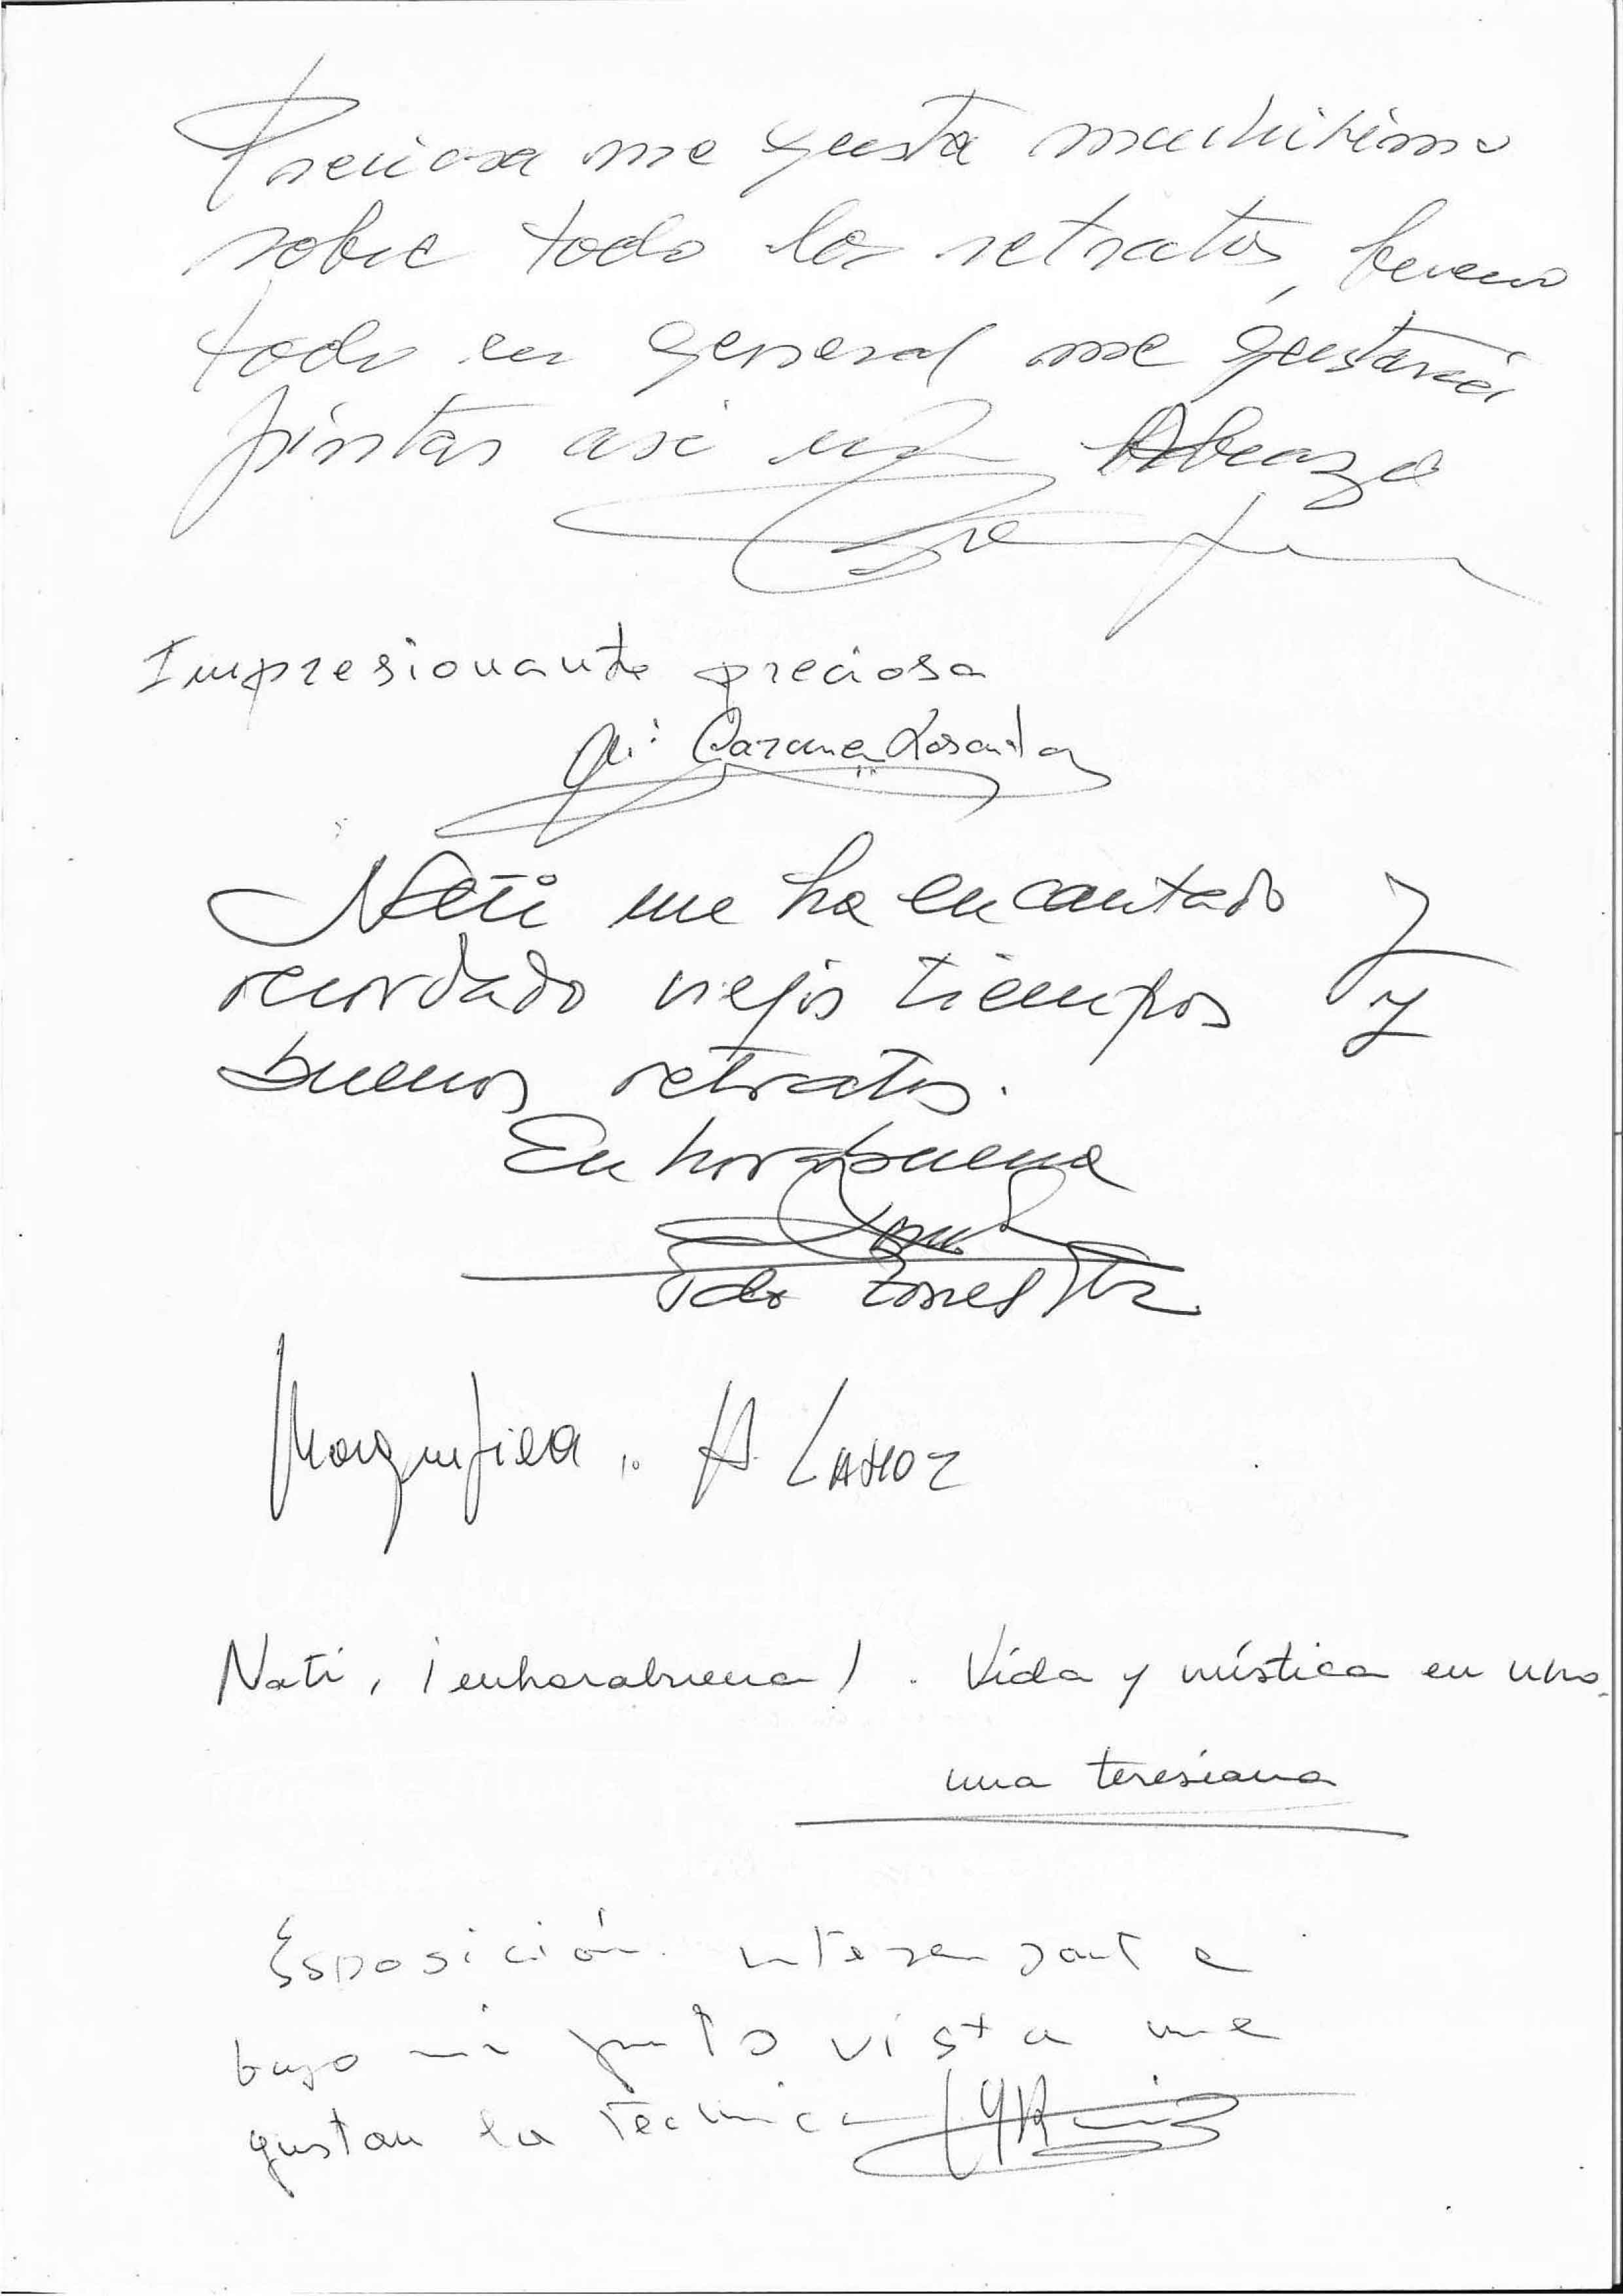 Preciosa me gusta muchisimo
sobre todo los retratos, bueno
todo en general me gustaria
pintar asi un Abrazo
Impresionante preciosa
Nati me ha encantado y
recordado viejos tiempos y
buenos retratos.
Enhorabuena
Magnifica. A. LAHOZ
Nati, ¡enhorabuena!. Vida y mística en uno.
una teresiana
Esposición interesante
bajo mi puto vista me
gustan la tecnica